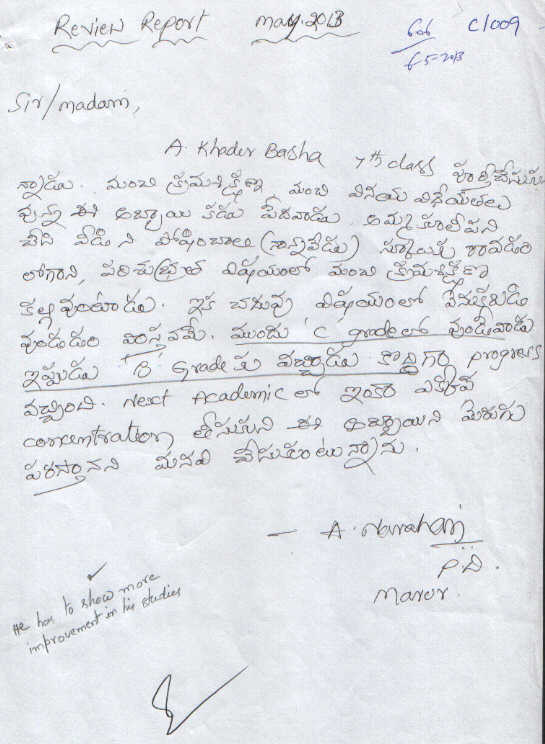 Review Report May-2013
C1009
6-5-2013
Sir/madam,
A. Khader Basha 7th class పూర్తిచేసుకు
న్నాడు. మంచి క్రమశిక్షణ మంచి వినయ విధేయతలు
వున్న ఈ అబ్బాయి కడు పేదవాడు. అమ్మ కూలిపని
చేసి వీడిని పోషించాలి (నాన్నలేడు) స్కూలుకు రావడం
లోగాని, పరిశుభ్రత విషయంలో మంచి క్రమశిక్షణ
కల్గివుంటాడు. ఇక చదువు విషయంలో వెనుకబడి
వుండడం వాస్తవమే. ముందు 'C' gradeలో వుండేవాడు
ఇప్పుడు 'B' Grade కు వచ్చాడు కొద్దిగా progress
వచ్చింది. Next Academic లో ఇంకా ఎక్కువ
concentration తీసుకుని ఈ అబ్బాయిని మెరుగు
పరుస్తానని మనవి చేసుకుంటున్నాను.
– A.
P.D.
Marur.
He has to show more
improvement in his studies